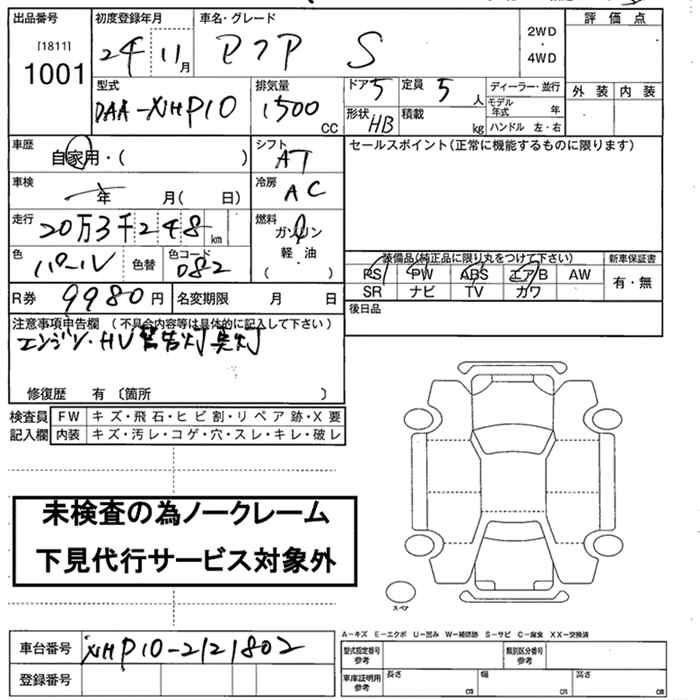 出品番号 初度登録年月 車名・グレード 評価点
[1811] 24年 11月 アクア S 2WD・4WD
1001
型式 排気量 ドア 5 定員 5人 ディーラー・並行 外装 内装
DAA-NHP10 1500cc 形状 HB 積載 kg モデル年式 年
ハンドル 左・右
車歴 自家用・( ) シフト AT セールスポイント(正常に機能するものに限ります)
車検 年 月( 日) 冷房 AC
走行 20万3千248km 燃料 ガソリン
軽・油
( )
色 パール 色替 色コード 082 装備品(純正品に限り丸をつけて下さい) 新車保証書
PS PW ABS エアB AW 有・無
R券 9980円 名変期限 月 日 SR ナビ TV カワ
注意事項申告欄 (不具合内容等は具体的に記入して下さい) 後日品
エンジン・HV警告灯点灯
修復歴 有 〔箇所 〕
検査員 FW キズ・飛石・ヒビ割・リペア跡・X要
記入欄 内装 キズ・汚レ・コゲ・穴・スレ・キレ・破レ
未検査の為ノークレーム
下見代行サービス対象外
スペア
車台番号 NHP10-2121802
登録番号
A-キズ E-エクボ U-凹み W-補修跡 S-サビ C-腐食 XX-交換済
型式指定番号 参考 類別区分番号 参考
車庫証明用 参考 長さ cm 幅 cm 高さ cm